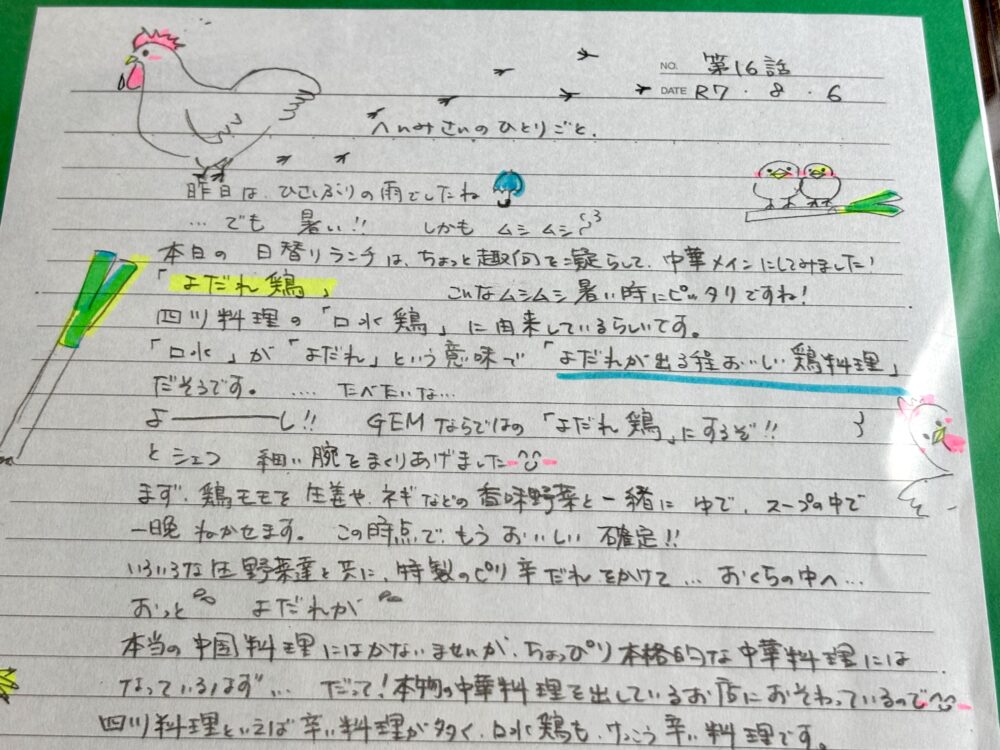 NO. 第16話
DATE R7・8・6
へいみさいのひとりごと.
昨日は、ひさしぶりの雨でしたね
…でも 暑い!! しかも ムシムシ
本日の 日替りランチは、ちょっと趣向を凝らして、中華メインにしてみました!
「よだれ鶏」 こんなムシムシ暑い時にピッタリですね!
四川料理の「口水鶏」に由来しているらしいです。
「口水」が「よだれ」という意味で「よだれが出る程おいしい鶏料理」
だそうです。 …. たべたいな…
よーーーし!! GEMならではの「よだれ鶏」にするぞ!!
とシェフ 細い腕をまくりあげました
まず、鶏モモを生姜や、ネギなどの香味野菜と一緒に ゆで、スープの中で
一晩 ねかせます。 この時点で、もう おいしい 確定!!
いろいろな生野菜達と共に、特製のピリ辛だれをかけて… おくちの中へ…
おっと よだれが
本当の中国料理にはかないませんが、ちょっぴり本格的な中華料理には
なっているはず… だって!本物の中華料理を出しているお店におそわっているので
四川料理といえば辛い料理が多く、口水鶏も、けっこう辛い料理です。